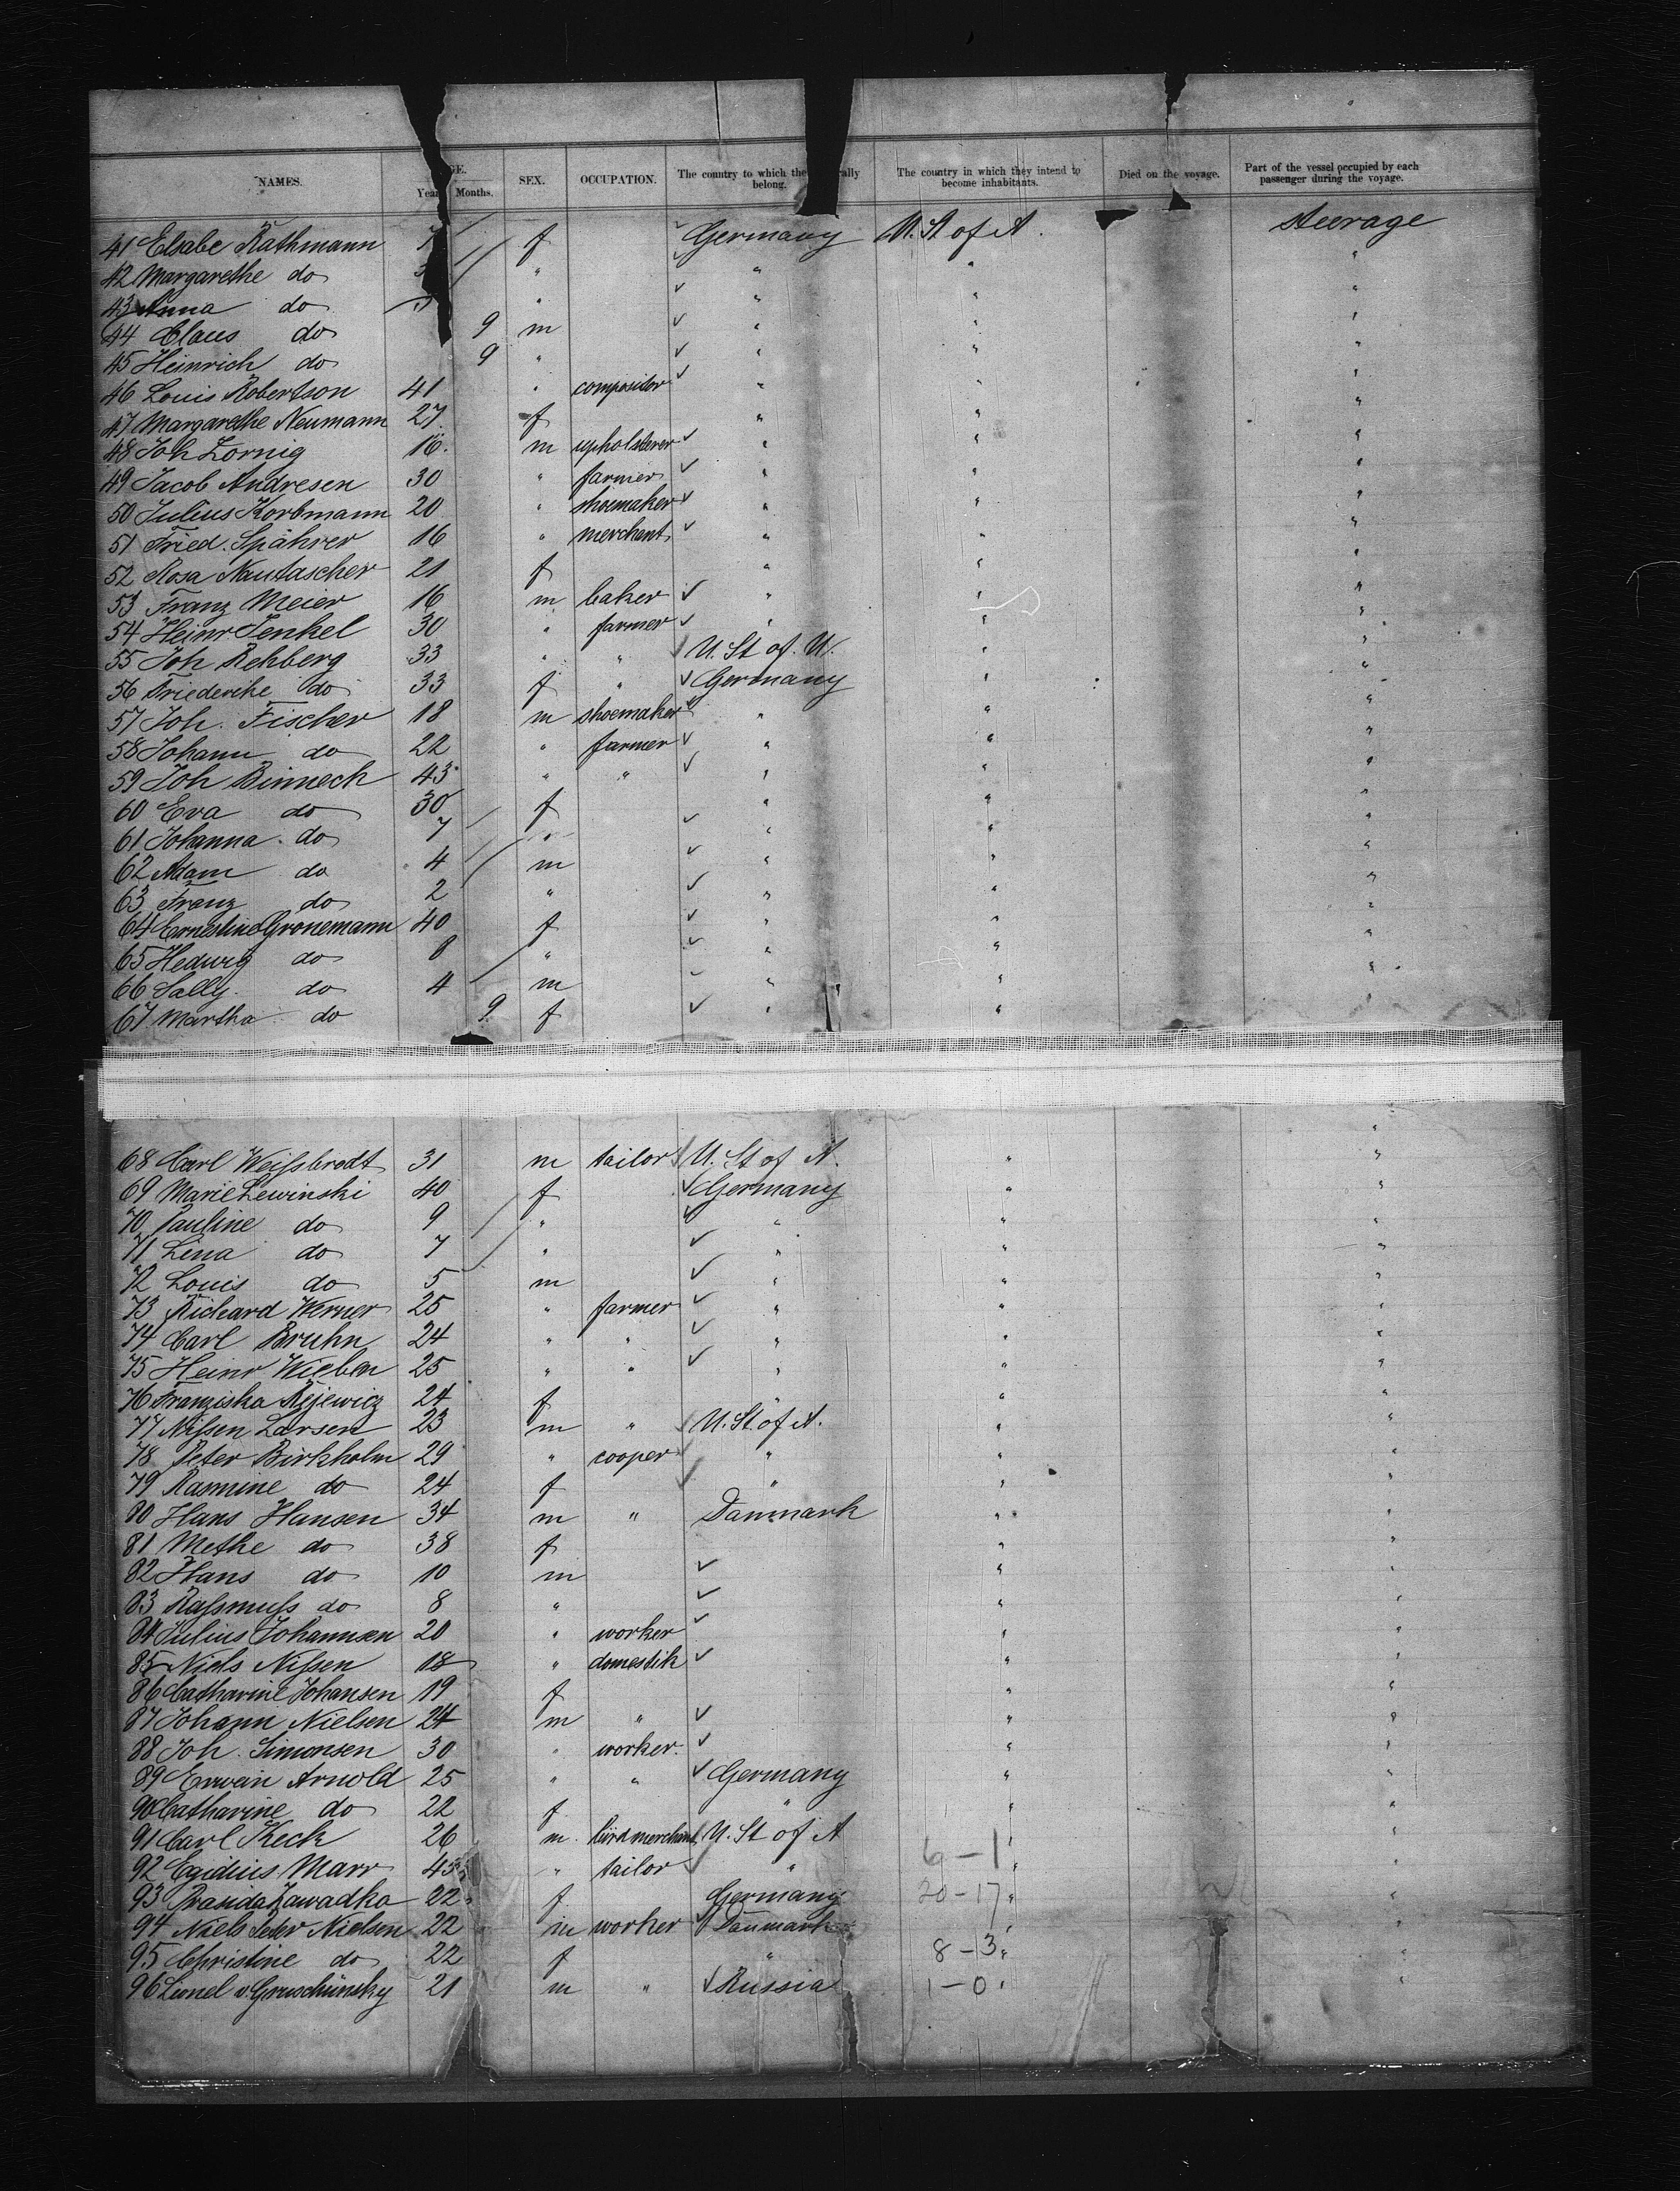 NAMES. AGE. Years Months. SEX. OCCUPATION. The country to which they severally belong. The country in which they intend to become inhabitants. Died on the voyage. Part of the vessel occupied by each passenger during the voyage.
41 Elsabe Rathmann 7 f Germany U. St of A. steerage
42 Margarethe do " " " "
43 Anna do " " " "
44 Claus do 9 m " " "
45 Heinrich do 9 " " " "
46 Louis Robertson 41 " compositor " " "
47 Margarethe Neumann 27 f " " "
48 Joh Zornig 16. m upholsterer " " "
49 Jacob Andresen 30 " farmer " " "
50 Julius Korbmann 20 " shoemaker " " "
51 Fried. Spährer 16 " merchant " " "
52 Rosa Nautascher 21 f " " "
53 Franz Meier 16 m baker " " "
54 Heinr Jenkel 30 " farmer " " "
55 Joh Rehberg 33 " " U. St of. A. " "
56 Friederike do 33 f " Germany " "
57 Joh. Fischer 18 m shoemaker " " "
58 Johann do 22 " farmer " " "
59 Joh Binneck 43 " " " " "
60 Eva do 30 f " " "
61 Johanna do 7 " " " "
62 Adam do 4 m " " "
63 Franz do 2 " " " "
64 Ernestine Gronemann 40 f " " "
65 Hedwig do 8 " " " "
66 Sally do 4 m " " "
67 Martha do 9 f " " "
68 Carl Weissbrodt 31 m tailor U. St of A. " "
69 Marie Lewinski 40 f Germany " "
70 Pauline do 9 " " " "
71 Lina do 7 " " " "
72 Louis do 5 m " " "
73 Richard Werner 25 " farmer " " "
74 Carl Bruhn 24 " " " " "
75 Heinr Wieben 25 " " " " "
76 Franziska Rejewicz 24 f " " "
77 Nissen Larsen 23 m " U. St. of A. " "
78 Peter Birkholm 29 " cooper " " "
79 Rasmine do 24 f " " "
80 Hans Hansen 34 m " Danmark " "
81 Methe do 38 f " "
82 Hans do 10 m " "
83 Rassmuss do 8 " " "
84 Julius Johannsen 20 " worker " "
85 Niels Nissen 18 " domestik " "
86 Catharine Johansen 19 f " "
87 Johann Nielsen 24 m " " "
88 Joh. Simonsen 30 " worker. " "
89 Erwein Arnold 25 " " Germany " "
90 Catharine do 22 f " " "
91 Carl Keck 26 m. birdmerchant U. St of A 6-1 " "
92 Egidius Marr 45 " tailor " " "
93 Zawadka 22 f Germany 20-17 " "
94 Niels Peter Nielsen 22 m worker Danmark " "
95 Christine do 22 f " 8-3 " "
96 Lionel v. Gruschinsky 21 m " Russia 1-0 " "